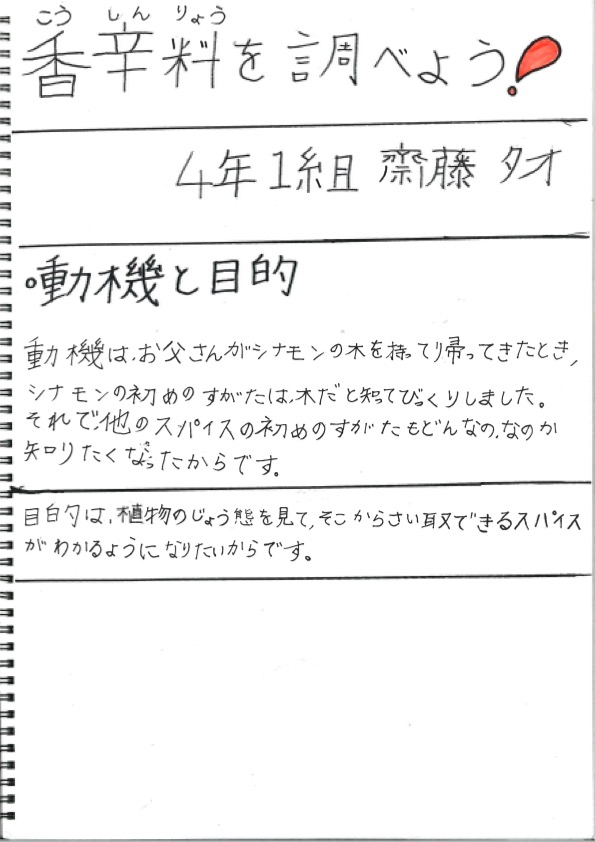 こう しん りょう
香辛料を調べよう!
4年1組 齋藤 タオ
○動機と目的
動機は、お父さんがシナモンの木を持って帰ってきたとき、
シナモンの初めのすがたは、木だと知ってびっくりしました。
それで、他のスパイスの初めのすがたもどんなの、なのか
知りたくなったからです。
目的は、植物のじょう態を見て、そこからさい取できるスパイス
がわかるようになりたいからです。